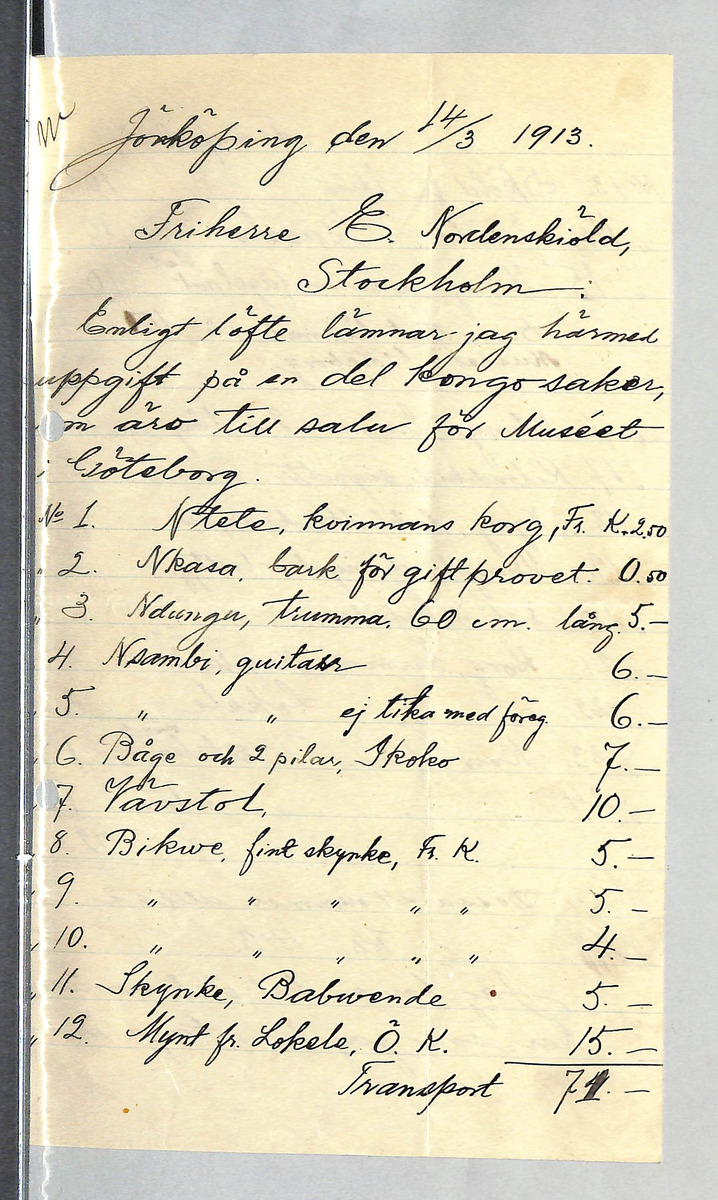 Jönköping den 14/3 1913.
Friherre E. Nordenskiöld,
Stockholm.
Enligt löfte lämnar jag härmed
uppgift på en del kongosaker,
m äro till salu för Muséet
i Göteborg.
No 1. Ntete, kvinnans korg, Fr. K. 2.50
" 2. Nkasa, bark för giftprovet. 0.50
" 3. Ndungu, trumma. 60 cm. lång. 5.—
" 4. Nsambi, guitarr 6.—
" 5. " " ej lika med föreg. 6.—
" 6. Båge och 2 pilar, Ikoko 7.—
" 7. Vävstol, 10.—
" 8. Bikwe, fint skynke, Fr. K. 5.—
" 9. " " " " " 5.—
" 10. " " " " " 4.—
" 11. Skynke, Babwende 5.—
" 12. Mynt fr. Lokele, Ö. K. 15.—
Transport 71.—